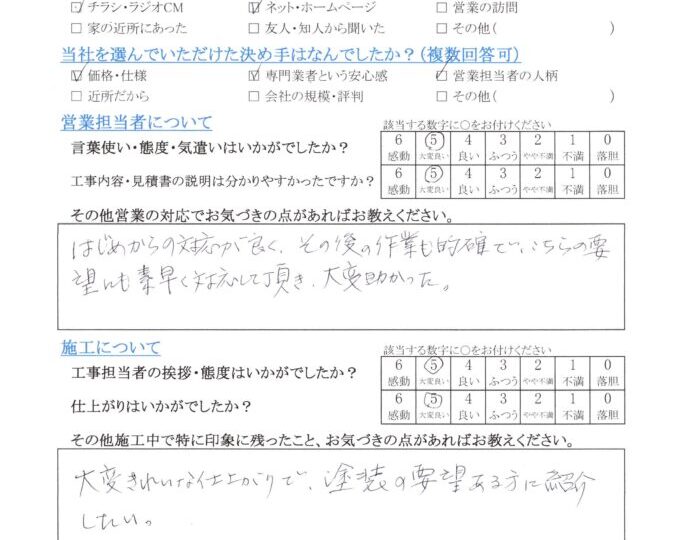 □ チラシ・ラジオCM ☑ ネット・ホームページ □ 営業の訪問
□ 家の近所にあった □ 友人・知人から聞いた □ その他( )
当社を選んでいただけた決め手はなんでしたか?(複数回答可)
☑ 価格・仕様 ☑ 専門業者という安心感 ☑ 営業担当者の人柄
□ 近所だから □ 会社の規模・評判 □ その他( )
営業担当者について 該当する数字に○をお付けください
言葉使い・態度・気遣いはいかがでしたか? 6 5 4 3 2 1 0
感動 大変良い 良い ふつう やや不満 不満 落胆
工事内容・見積書の説明は分かりやすかったですか? 6 5 4 3 2 1 0
感動 大変良い 良い ふつう やや不満 不満 落胆
その他営業の対応でお気づきの点があればお教えください。
はじめからの対応が良く、その後の作業も的確で、こちらの要
望にも素早く対応して頂き、大変助かった。
施工について 該当する数字に○をお付けください
工事担当者の挨拶・態度はいかがでしたか? 6 5 4 3 2 1 0
感動 大変良い 良い ふつう やや不満 不満 落胆
仕上がりはいかがでしたか? 6 5 4 3 2 1 0
感動 大変良い 良い ふつう やや不満 不満 落胆
その他施工中で特に印象に残ったこと、お気づきの点があればお教えください。
大変きれいな仕上がりで、塗装の要望ある方に紹介
したい。